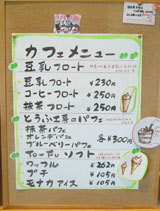 カフェメニュー
豆乳フロート
豆乳フロート ¥230円
コーヒーフロート ¥250円
抹茶フロート ¥250円
とうふ豆専のパフェ
抹茶パフェ
オレンヂパフェ 各¥300円
ブルーベリーパフェ
ソフト
ワッフル ¥262円
プチ ¥105円
モナカアイス ¥105円